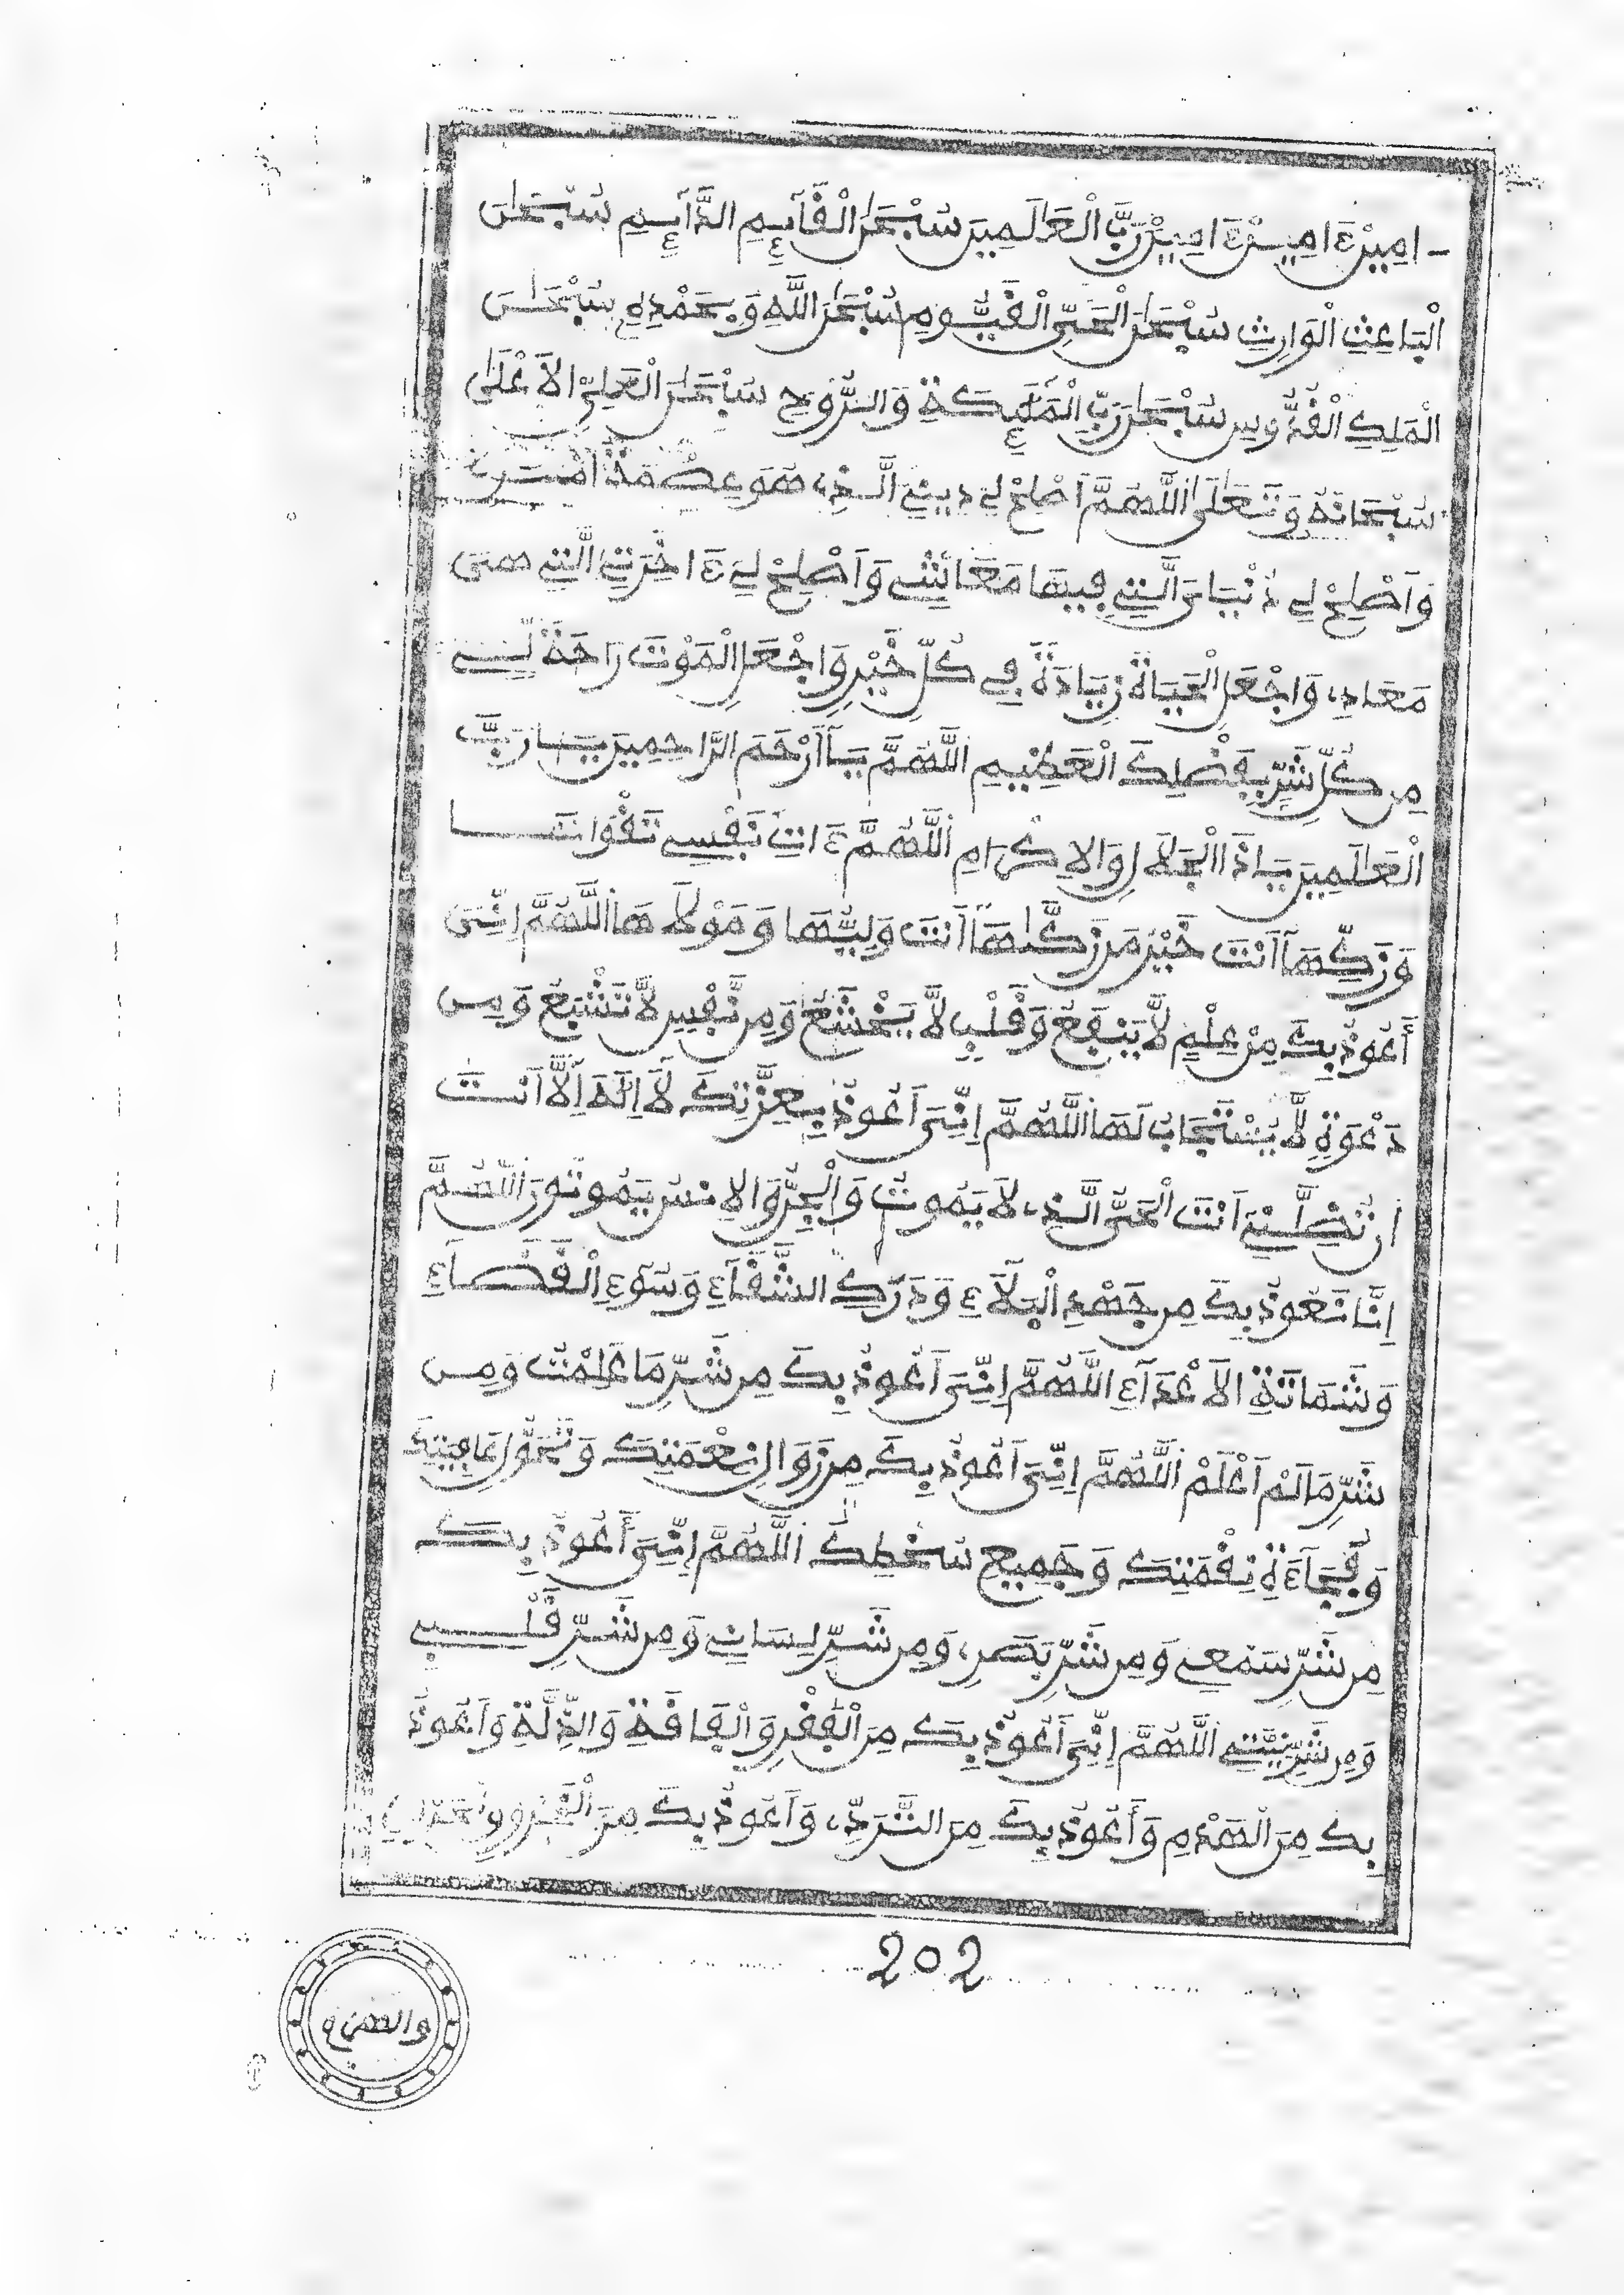 ـامِينْ ءَامِيـنْ ءَامِينْ رَبَّ الْعَٰلَمِينَ سُبْحَٰنَ الْقَآئِمِ الدَّآئِمِ سُبْحَٰنَ
الْبَاعِثِ الْوَارِثِ سُبْحَٰنَ الْحَىِّ الْقَيُّومِ سُبْحَٰنَ اللَّهِ وَبِحَمْدِهِ سُبْحَٰنَ
الْمَلِكِ الْقُدُّوسِ سُبْحَٰنَ رَبِّ الْمَلَٰٓئِكَةِ وَالرُّوحِ سُبْحَٰنَ الْعَلِىِّ الَاعْلَىٰ
سُبْحَانَهُ وَتَعَٰلَىٰ اللَّهُمَّ أَصْلِحْ لِے دِينِىَ الَّـذِے هُوَ عِصْمَةُ أَمْرِے
وَأَصْلِحْ لِے دُنْيَايَ الَّتِے فِيهَا مَعَائِشِے وَأَصْلِحْ لِےَ ءَاخِرَتِىَ الَّتِے هِىَ
مَعَادِے وَاجْعَلِ الْحَيَاةَ زِيَادَةً فِے كُلِّ خَيْرٍ وَاجْعَلِ الْمَوْتَ رَاحَةً لِّے
مِن كُلِّ شَرٍّ بِفَضْلِكَ الْعَظِيمِ اللَّهُمَّ يَـآ أَرْحَمَ الرَّاحِمِينَ يَـا رَبَّ
الْعَٰلَمِينَ يَـاذَا الْجَلَٰلِ وَالِاكْرَامِ اللَّهُمَّ ءَاتِ نَفْسِے تَقْوَاهَـا
وَزَكِّهَآ أَنْتَ خَيْرُ مَن زَكَّىٰهَآ أَنتَ وَلِيُّهَا وَمَوْلَٰهَا اللَّهُمَّ إِنِّىَ
أَعُوذُ بِكَ مِنْ عِلْمٍ لَّا يَنْفَعُ وَقَلْبٍ لَّا يَخْشَعُ وَمِن نَّفْسٍ لَّا تَشْبَعُ وَمِن
دَعْوَةٍ لَّا يُسْتَجَابُ لَهَا اللَّهُمَّ إِنِّىَ أَعُوذُ بِعِزَّتِكَ لَآ إِلَٰهَ إِلَّا أَنتَ
أَن تُضِلَّنِىَ أَنتَ الْحَىُّ الَّـذِے لَا يَمُوتُ وَالْجِنُّ وَالِانسُ يَمُوتُونَ اللَّهُمَّ
إِنَّا نَعُوذُ بِكَ مِن جَهْدِ الْبَلَآءِ وَدَرَكِ الشَّقَآءِ وَسُوٓءِ الْقَضَآءِ
وَشَمَاتَةِ الَاعْدَآءِ اللَّهُمَّ إِنِّىَ أَعُوذُ بِكَ مِن شَرِّ مَا عَلِمْتُ وَمِن
شَرِّ مَا لَمْ أَعْلَمْ اللَّهُمَّ إِنِّىَ أَعُوذُ بِكَ مِن زَوَالِ نِعْمَتِكَ وَتَحَوُّلِ عَافِيَتِكَ
وَفُجَآءَةِ نِقْمَتِكَ وَجَمِيعِ سُخْطِكَ اللَّهُمَّ إِنِّىَ أَعُوذُ بِكَ
مِن شَرِّ سَمْعِے وَمِن شَرِّ بَصَرِے وَمِن شَرِّ لِسَانِے وَمِن شَرِّ قَلْبِے
وَمِن شَرِّ نِيَّتِے اللَّهُمَّ إِنِّىَ أَعُوذُ بِكَ مِنَ الْفَقْرِ وَالْفَاقَةِ وَالذِّلَّةِ وَأَعُوذُ
بِكَ مِنَ الْهَدْمِ وَأَعُوذُ بِكَ مِنَ التَّرَدِّے وَأَعُوذُ بِكَ مِنَ
202